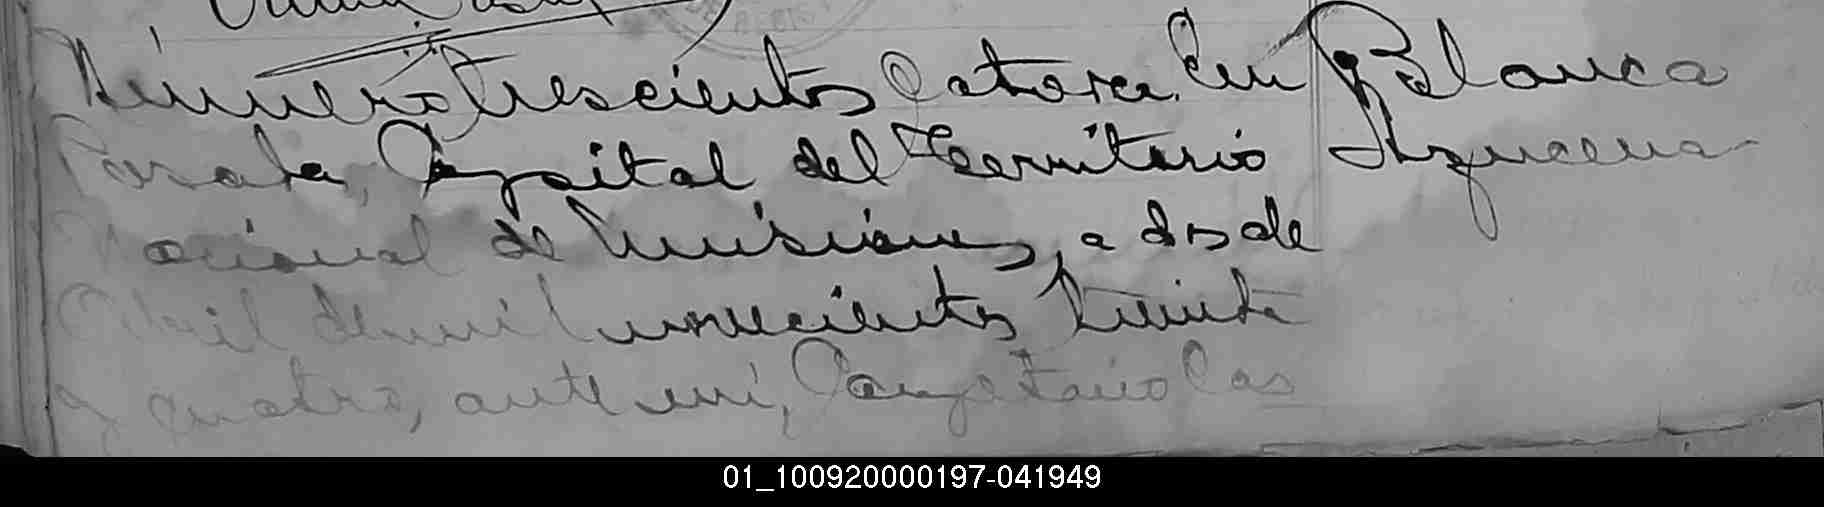 Número trescientos catorce. En
Posadas, Capital del Territorio
Nacional de Misiones, a dos de
Abril de mil novecientos treinta
y cuatro, ante mi, Cayetano Cas
Blanca
Azucena
01_100920000197-041949